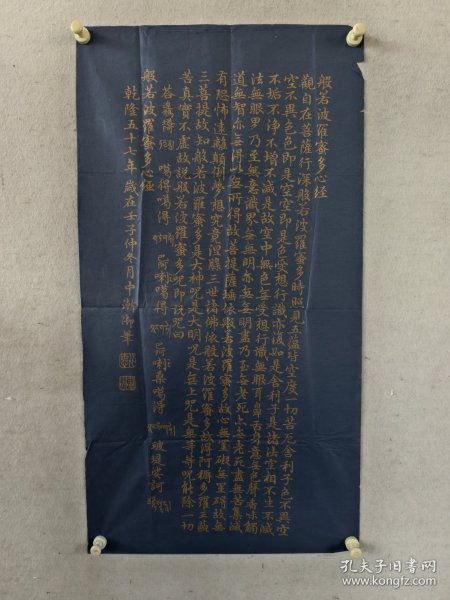 般若波羅蜜多心經
觀自在菩薩行深般若波羅蜜多時照見五蘊皆空度一切苦厄舍利子色不異空
空不異色色即是空空即是色受想行識亦復如是舍利子是諸法空相不生不滅
不垢不淨不增不減是故空中無色無受想行識無眼耳鼻舌身意無色聲香味觸
法無眼界乃至無意識界無無明亦無無明盡乃至無老死亦無老死盡無苦集滅
道無智亦無得以無所得故菩提薩埵依般若波羅蜜多故心無罣礙無罣礙故無
有恐怖遠離顛倒夢想究竟涅槃三世諸佛依般若波羅蜜多故得阿耨多羅三藐
三菩提故知般若波羅蜜多是大神咒是大明咒是無上咒是無等等咒能除一切
苦真實不虛故說般若波羅蜜多咒即說咒曰
噶得噶得 噶得 噶得 娑訶
般若波羅蜜多心經
乾隆五十七年歲在壬子仲冬月中澣御筆
孔夫子旧书网
www.kongfz.com